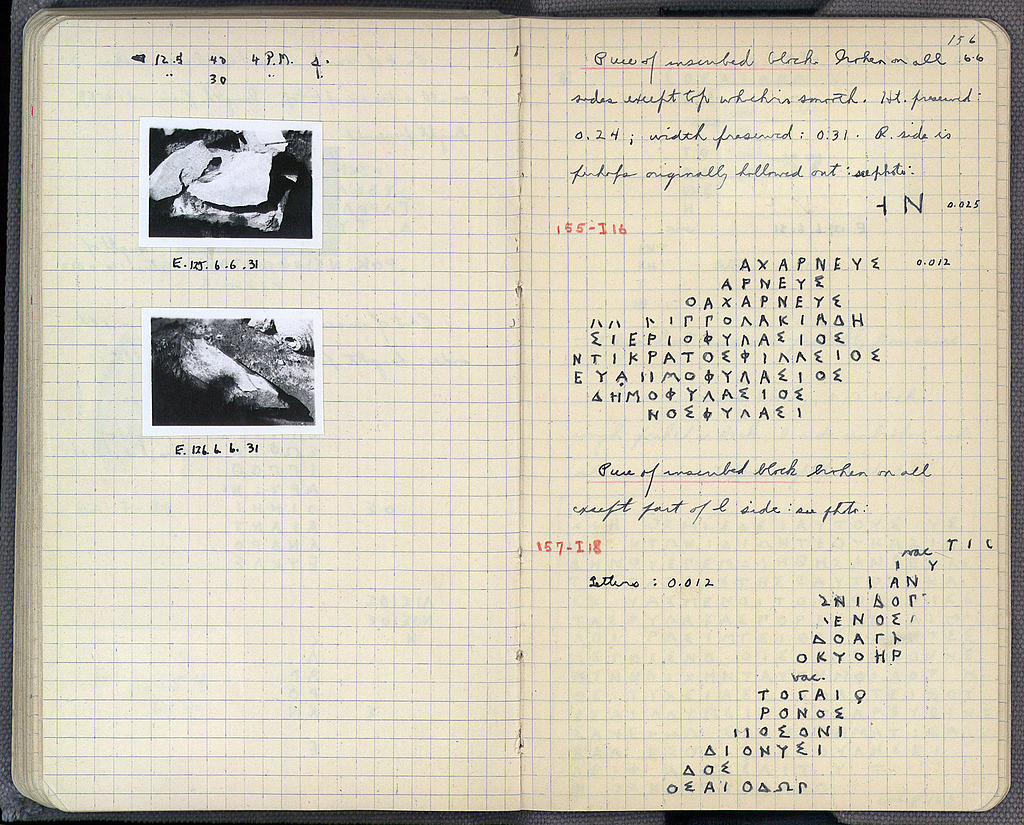 12.5 40 4 P.M.
" 30 "
E. 125. 6. 6. 31
E. 126. 6. 6. 31
156
Piece of inscribed block. Broken on all 6-6
sides except top which is smooth. Ht. preserved:
0.24; width preserved: 0.31. R. side is
perhaps originally hollowed out: see photo:
Ν 0.025
155-I16
ΑΧΑΡΝΕΥΣ 0.012
ΑΡΝΕΥΣ
ΟΑΧΑΡΝΕΥΣ
ΙΓΓΟΛΑΚΙΑΔΗ
ΣΙΕΡΙΟΦΥΛΑΣΙΟΣ
ΝΤΙΚΡΑΤΟΣΦΙΛΛΣΙΟΣ
ΕΥΔΙΙΜΟΦΥΛΑΣΙΟΣ
ΔΗΜΟΦΥΛΑΣΙΟΣ
ΝΟΣΦΥΛΑΣΙ
Piece of inscribed block broken on all
except part of l side: see photo:
157-I18
vac Τ Ι
Ι Υ
Letters: 0.012 ΙΑΝ
ΝΙΔΟΓ
ΕΝΟΣ
ΔΟΑΓ
ΟΚΥΘΗΡ
vac.
ΤΟΓΑΙΟ
ΡΟΝΟΣ
ΟΣΟΝΙ
ΔΙΟΝΥΣΙ
ΔΟΣ
ΟΣΑΙΟΔΩΓ